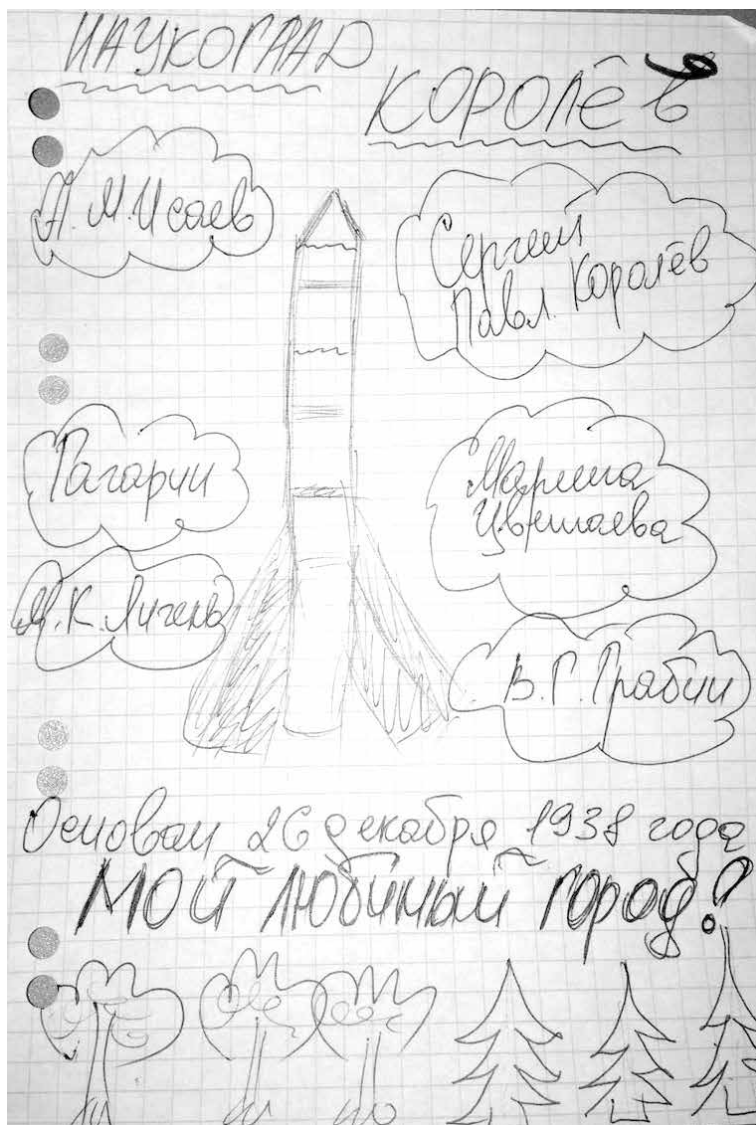 НАУКОГРАД
КОРОЛЁВ
А.М.Исаев
Сергей
Павл. Королёв
Гагарин
Марина
Цветаева
М.К.
В.Г.Грабин
Основан 26 декабря 1938 года
Мой любимый город!